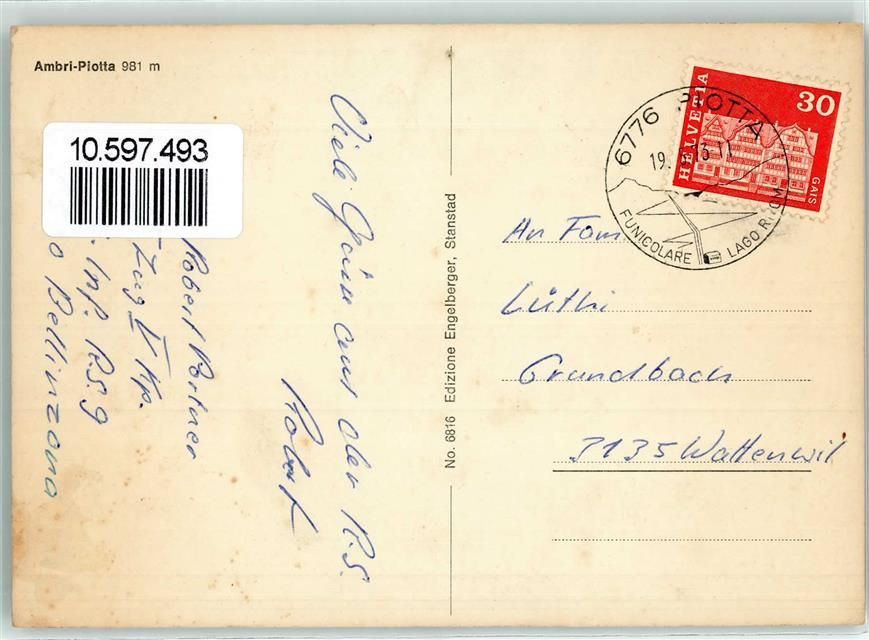 Ambri-Piotta 981 m
10.597.493
Viele Grüsse aus der R.S.
Robert
Robert Portner
Zug V Kp.
Inf. R.S 9
o Bellinzona
No. 6816 Edizione Engelberger, Stanstad
HELVETIA
30
GAIS
6776 PIOTTA
19.
13-11
FUNICOLARE
LAGO R
OM
An Fam
Lüthi
Grundbach
3135 Wattenwil